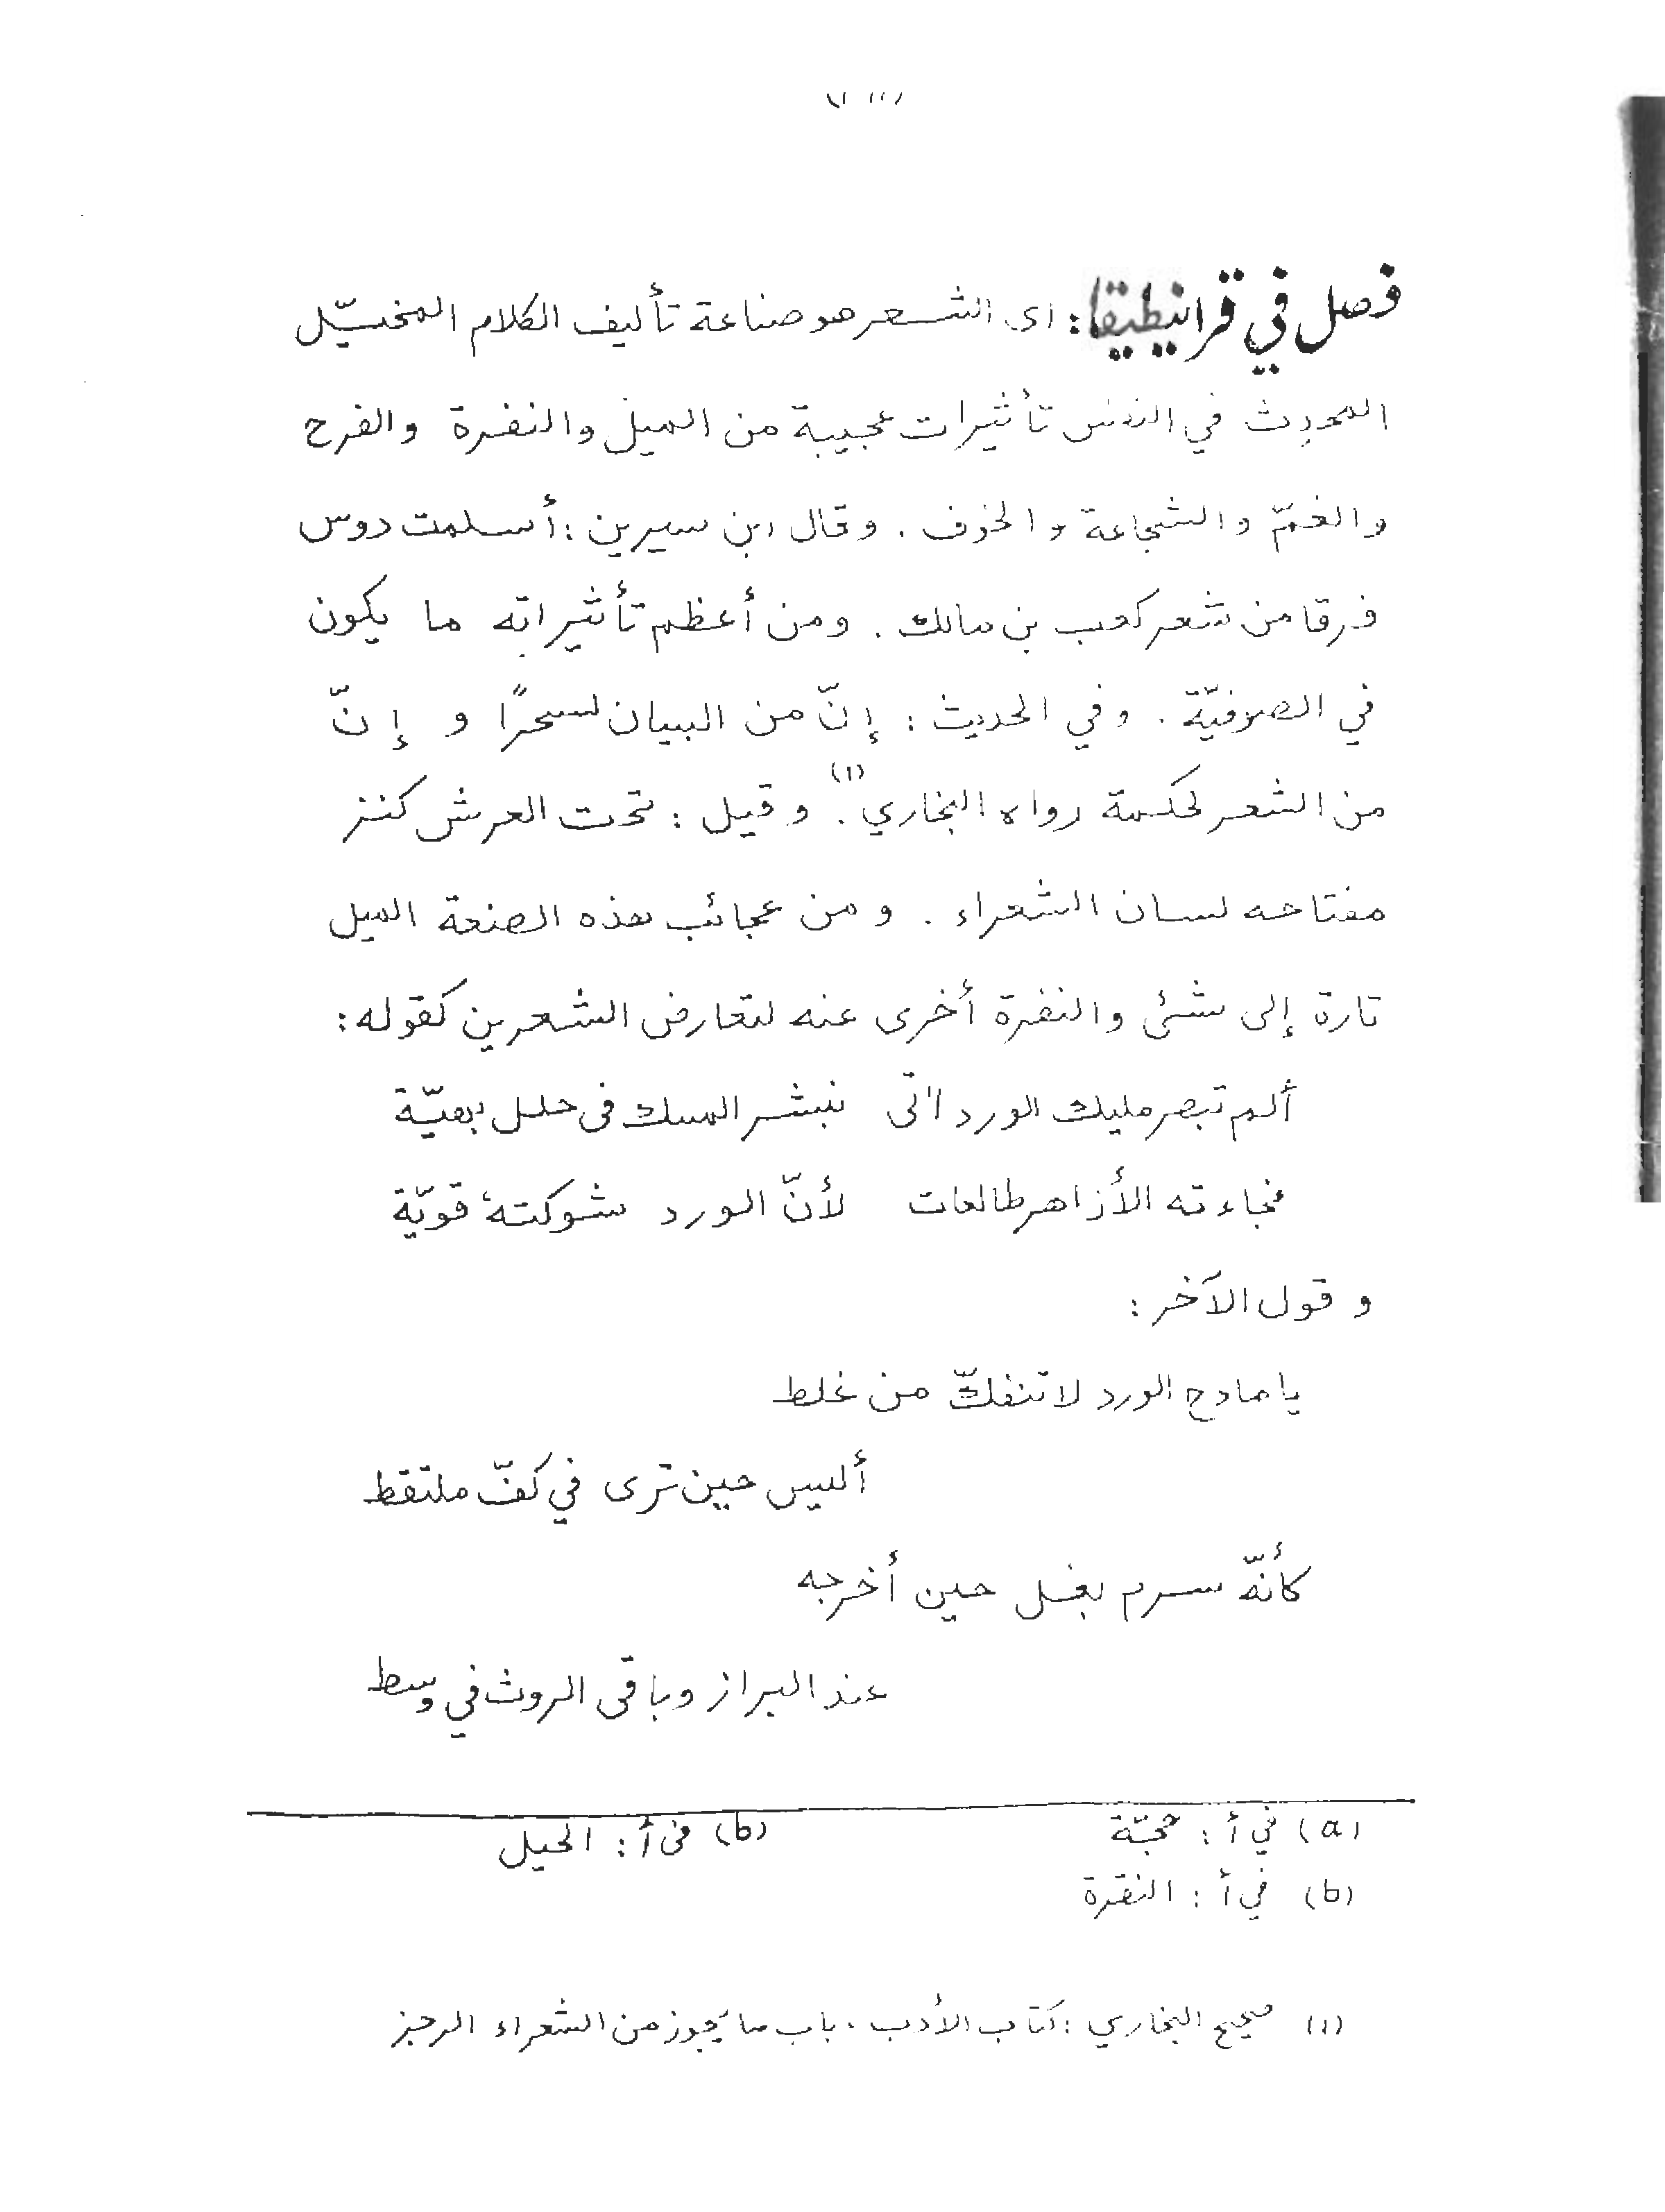 فصل في قرانيطيقا: اى الشعر هو صناعة تأليف الكلام المخيّل
المحدِث في النفس تأثيرات عجيبة من الميل والنفرة والفرح
والغمّ والشجاعة والخوف . وقال ابن سيرين : أسلمت دوس
فرقا من شعر كعب بن مالك . ومن أعظم تأثيراته ما يكون
في الصوفيّة . وفي الحديث : إنّ من البيان لسحرًا و إنّ
من الشعر لحكمة رواه البخاري (١) . وقيل : تحت العرش كنز
مفتاحه لسان الشعراء . ومن عجائب هذه الصنعة الميل
تارة إلى شئ والنفرة أخرى عنه لتعارض الشعرين كقوله :
ألم تبصر مليك الورد اتى بنشر المسك فى حلل بهيّة
فجاءته الأزاهر طالعات لأنّ الورد شوكته قويّة
و قول الآخر :
يا مادح الورد لا تنفكّ من غلط
أليس حين ترى في كفّ ملتقط
كأنّه سرم بغل حين أخرجه
عند البراز وباقى الروث في وسط
(a) في أ : محجبّة (b) فى أ : الحيل
(b) في أ : النقرة
(١) صحيح البخاري : كتاب الأدب ، باب ما يجوز من الشعراء الرجز